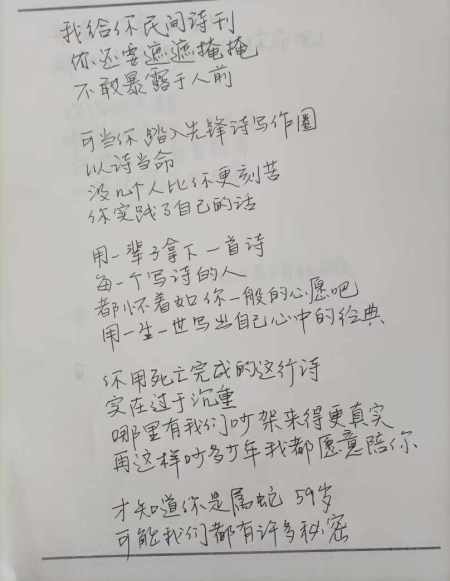 我给你民间诗刊
你还要遮遮掩掩
不敢暴露于人前
可当你踏入先锋诗写作圈
以诗当命
没几个人比你更刻苦
你实践了自己的话
用一辈子拿下一首诗
每一个写诗的人
都怀着如你一般的心愿吧
用一生一世写出自己心中的经典
你用死亡完成的这行诗
实在过于沉重
哪里有我们吵架来得更真实
再这样吵多少年我都愿意陪你
才知道你是属蛇 59岁
可能我们都有许多秘密